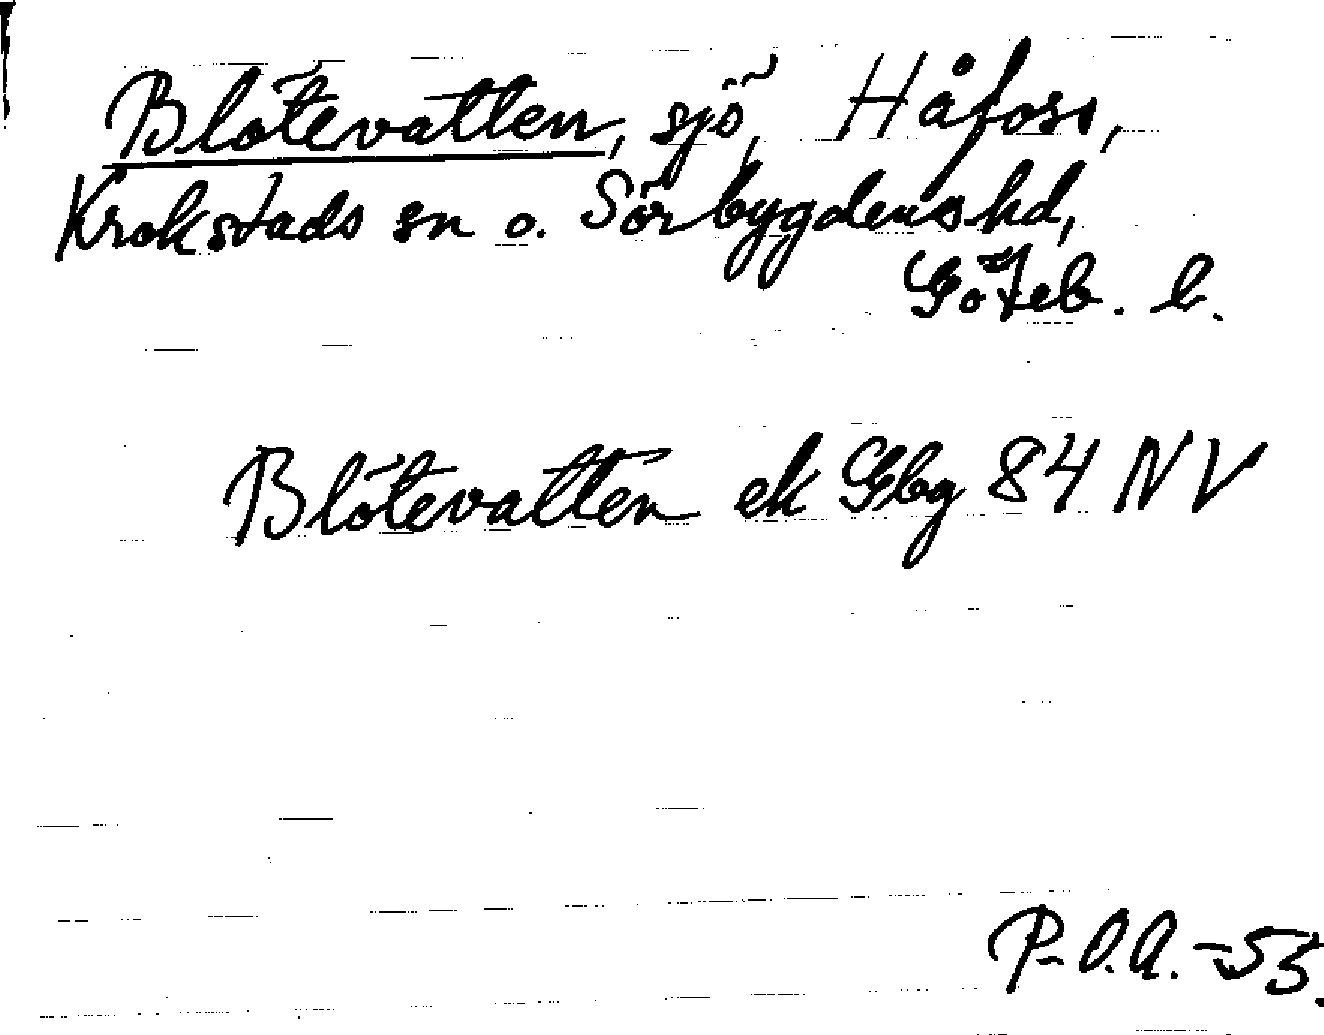 Blötevatten, sjö, Håfoss,
Krokstads sn o. Sörbygdens hd,
Göteb. l.
Blötevatten ek Gbg 84 NV
P-O.A. -53.